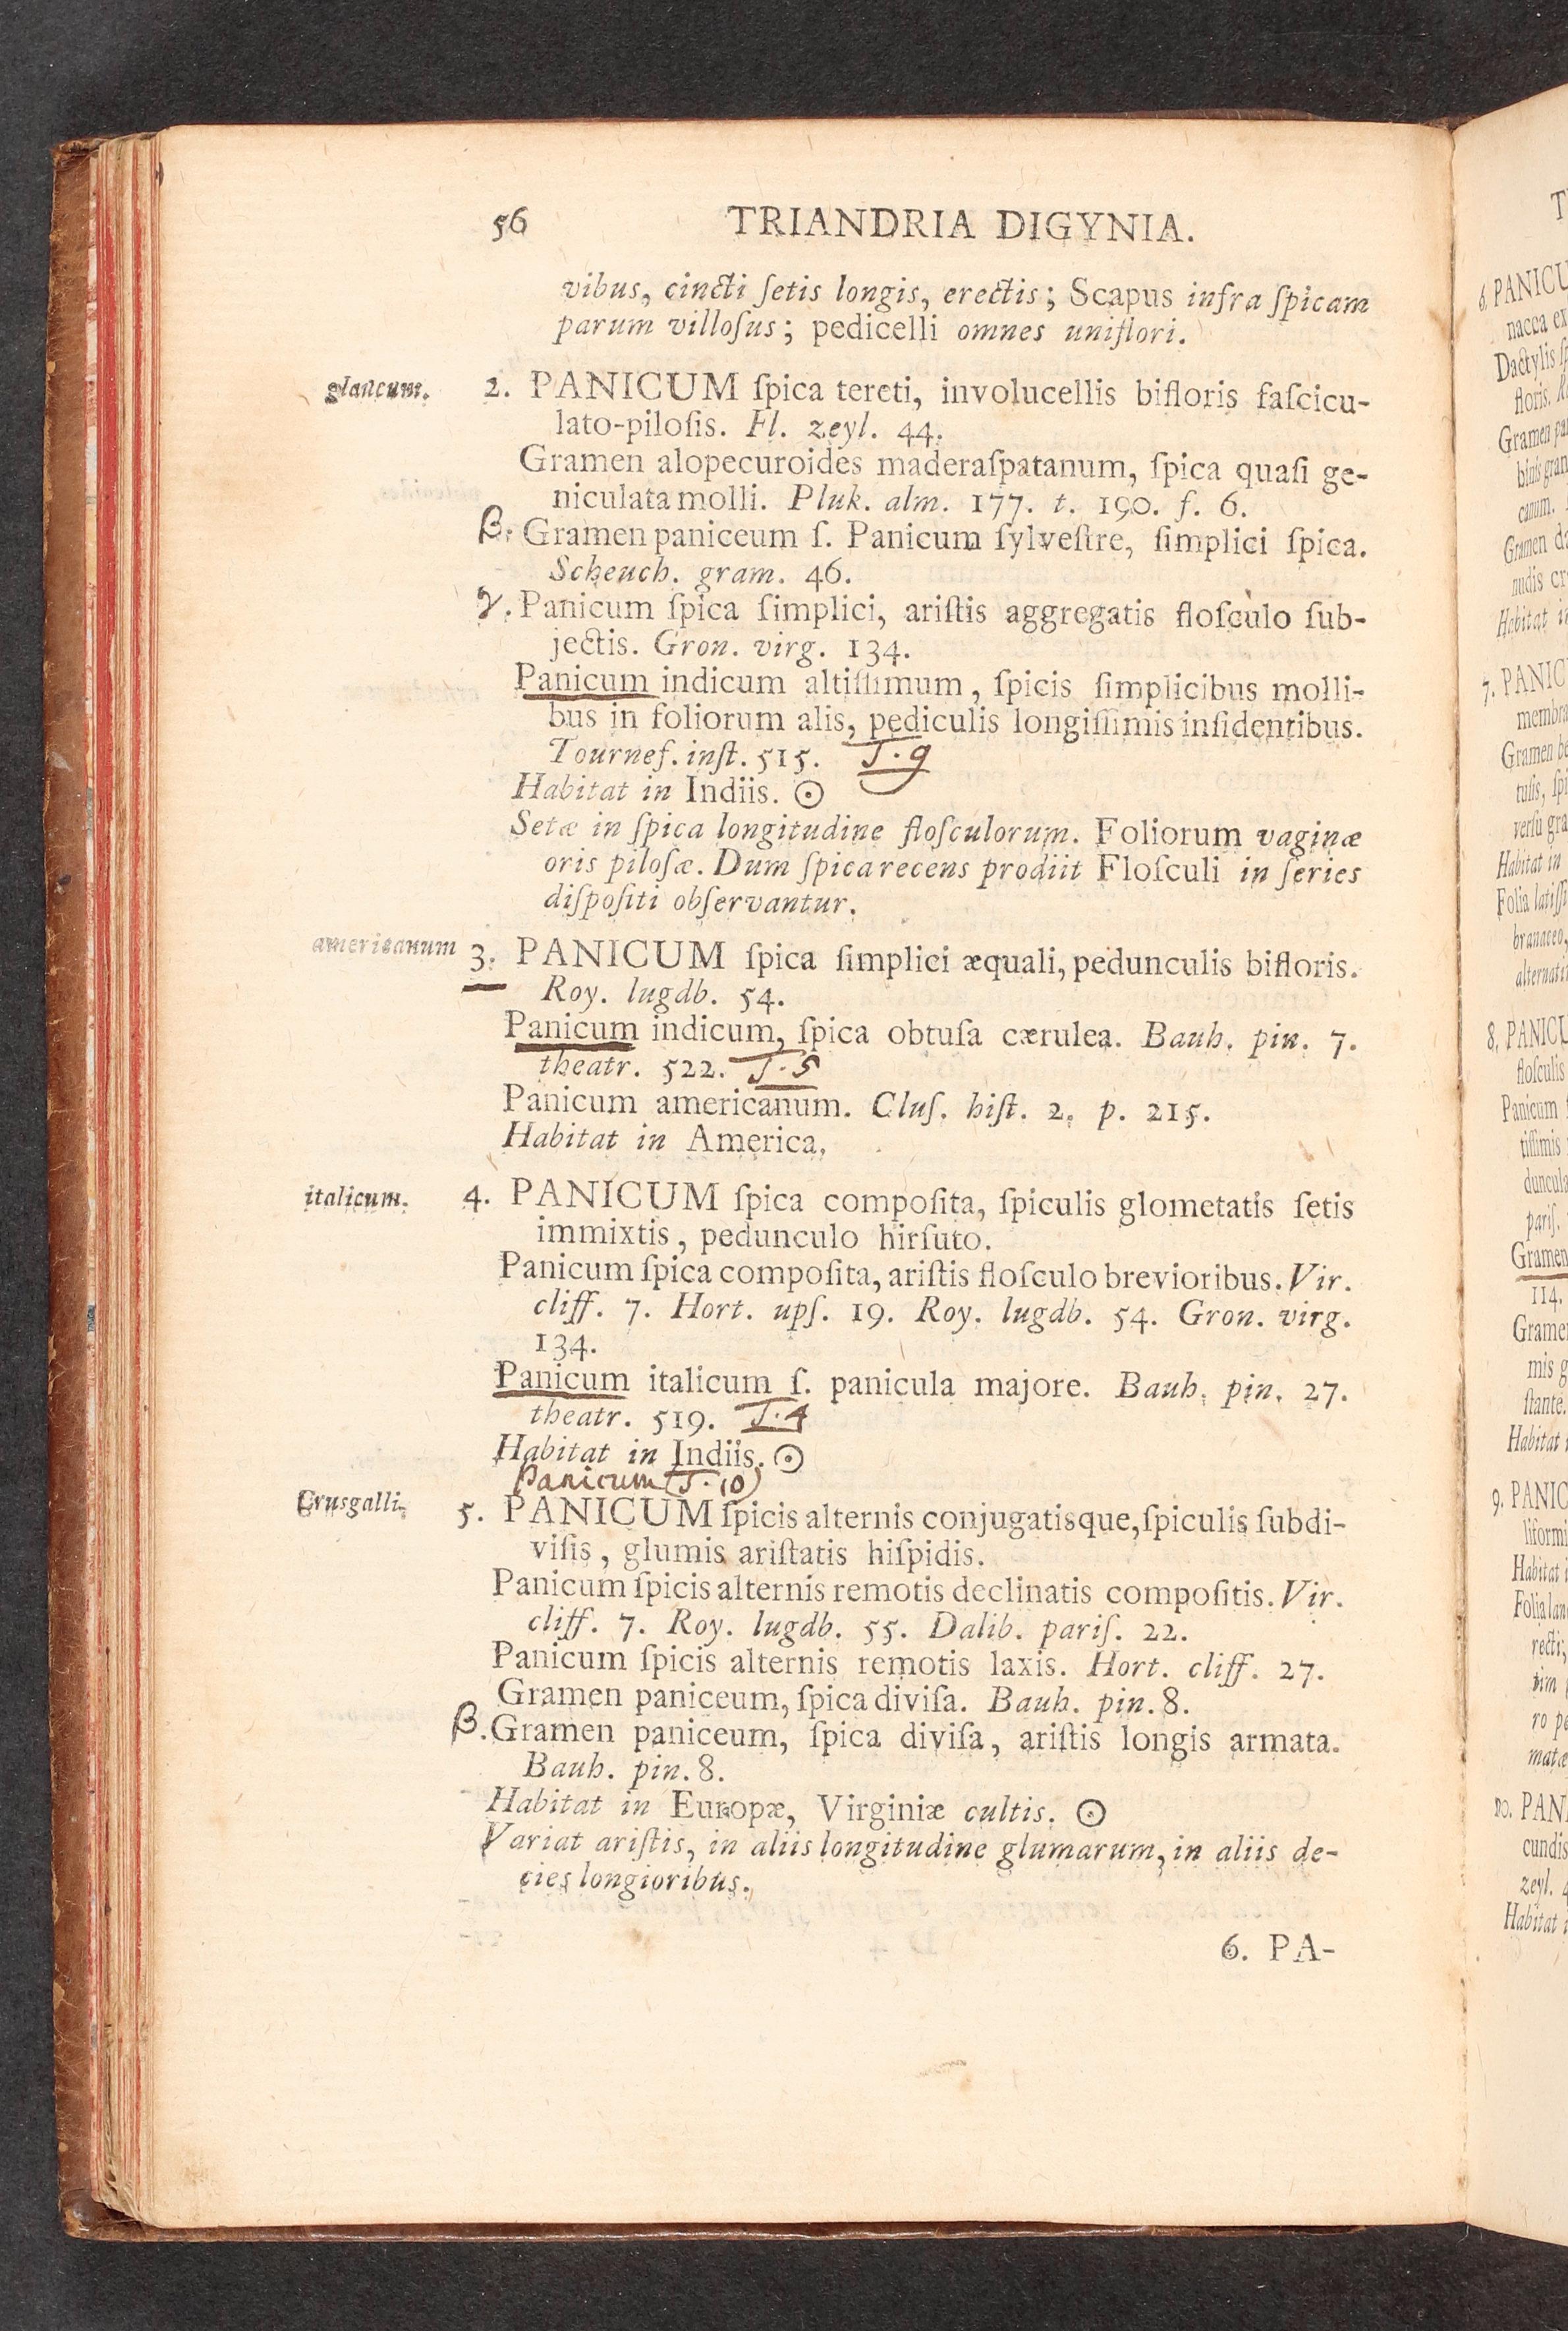 56 TRIANDRIA DIGYNIA.
vibus, cincti ſetis longis, erectis; Scapus infra ſpicam
parum villoſus; pedicelli omnes uniflori.
glaucum. 2. PANICUM ſpica tereti, involucellis bifloris faſcicu-
lato-piloſis. Fl. zeyl. 44.
Gramen alopecuroides maderaſpatanum, ſpica quaſi ge-
niculata molli. Pluk. alm. 177. t. 190. f. 6.
β. Gramen paniceum ſ. Panicum ſylveſtre, ſimplici ſpica.
Scheuch. gram. 46.
γ. Panicum ſpica ſimplici, ariſtis aggregatis floſculo ſub-
jectis. Gron. virg. 134.
Panicum indicum altiſſimum, ſpicis ſimplicibus molli-
bus in foliorum alis, pediculis longiſſimis inſidentibus.
Tournef. inſt. 515. T. 9
Habitat in Indiis. ☉
Setæ in ſpica longitudine floſculorum. Foliorum vaginæ
oris piloſæ. Dum ſpica recens prodiit Floſculi in ſeries
diſpoſiti obſervantur.
americanum 3. PANICUM ſpica ſimplici æquali, pedunculis bifloris.
Roy. lugdb. 54.
Panicum indicum, ſpica obtuſa cærulea. Bauh. pin. 7.
theatr. 522. T. 5
Panicum americanum. Cluſ. hiſt. 2. p. 215.
Habitat in America.
italicum. 4. PANICUM ſpica compoſita, ſpiculis glometatis ſetis
immixtis, pedunculo hirſuto.
Panicum ſpica compoſita, ariſtis floſculo brevioribus. Vir.
cliff. 7. Hort. upſ. 19. Roy. lugdb. 54. Gron. virg.
134.
Panicum italicum ſ. panicula majore. Bauh. pin. 27.
theatr. 519. T. 4
Habitat in Indiis. ☉
Panicum (T. 10)
Crusgalli. 5. PANICUM ſpicis alternis conjugatisque, ſpiculis ſubdi-
viſis, glumis ariſtatis hiſpidis.
Panicum ſpicis alternis remotis declinatis compoſitis. Vir.
cliff. 7. Roy. lugdb. 55. Dalib. pariſ. 22.
Panicum ſpicis alternis remotis laxis. Hort. cliff. 27.
Gramen paniceum, ſpica diviſa. Bauh. pin. 8.
β. Gramen paniceum, ſpica diviſa, ariſtis longis armata.
Bauh. pin. 8.
Habitat in Europæ, Virginiæ cultis. ☉
Variat ariſtis, in aliis longitudine glumarum, in aliis de-
cies longioribus.
6. PA-